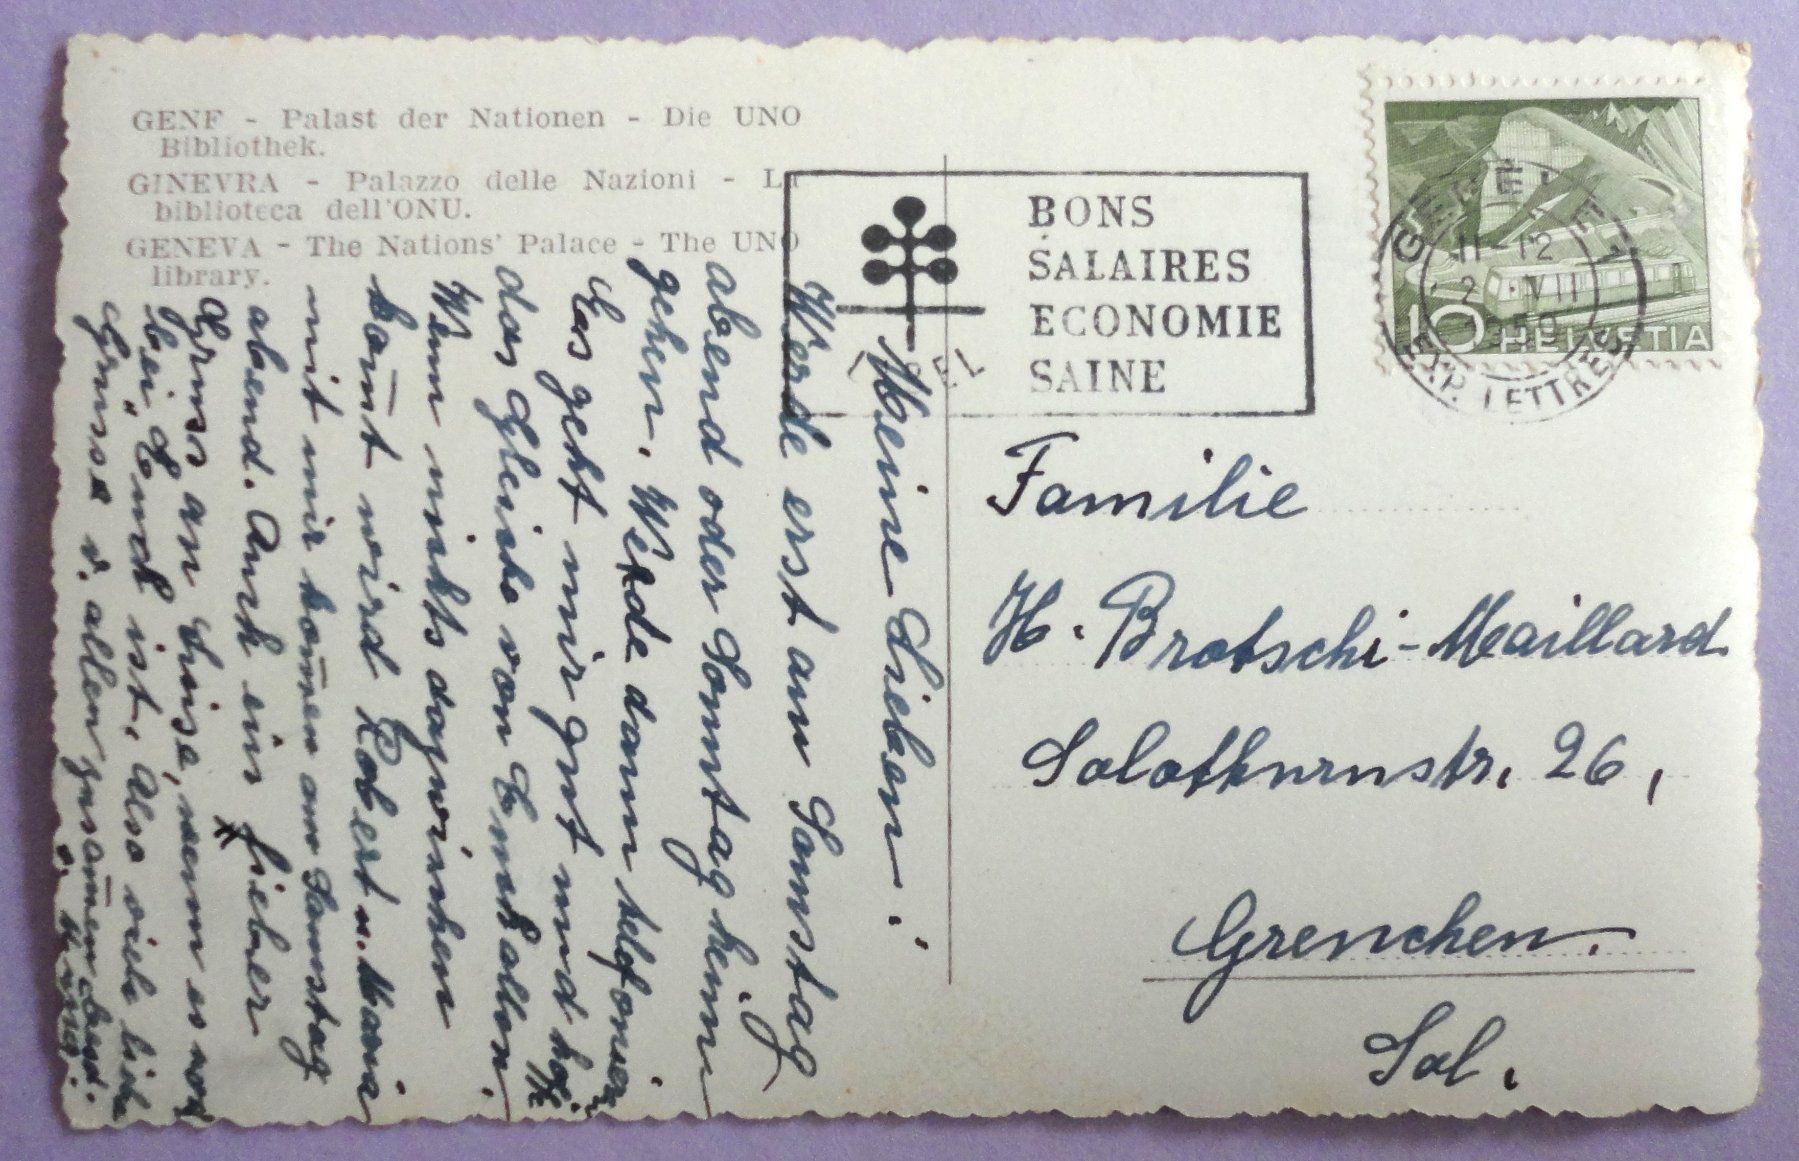 GENF - Palast der Nationen - Die UNO
Bibliothek.
GINEVRA - Palazzo delle Nazioni - La
biblioteca dell'ONU.
GENEVA - The Nations' Palace - The UNO
library.
BONS
SALAIRES
ECONOMIE
SAINE
HELVETIA
10
11-12
VII
EXP. LETTRES
Familie
H. Brotschi-Maillard
Solothurnstr. 26,
Grenchen.
Sol.
Meine Lieben!
Werde erst am Samstag
abend oder Sonntag heim
gehen. Werde dann telefonieren
Es geht mir gut und hoffe
das Gleiche von Euch allen.
Wenn nichts dazwischen
kom̄t wird Robert u.
mit mir kom̄en am Samstag
abend. Auch ein lieber
Gruss an Luise, wenn es noch
bei Euch ist. Also viele liebe
Grüsse v. allen zusam̄en